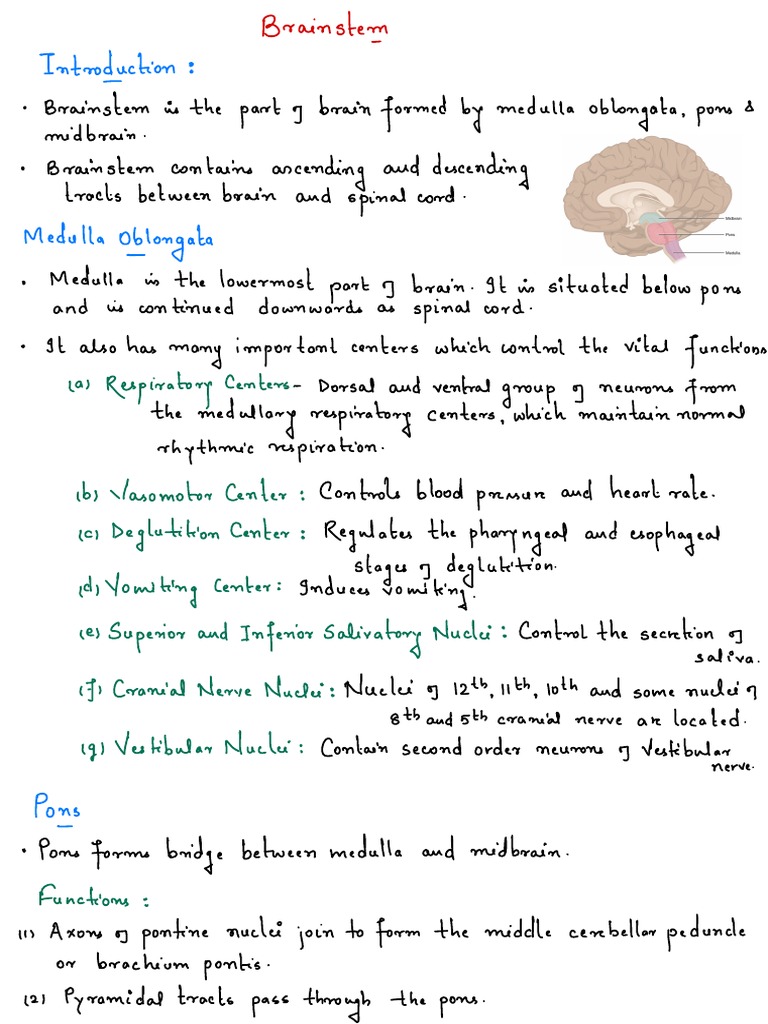 Brainstem
Introduction :
• Brainstem is the part of brain formed by medulla oblongata, pons &
midbrain.
• Brainstem contains ascending and descending
tracts between brain and spinal cord.
Midbrain
Pons
Medulla
Medulla Oblongata
• Medulla is the lowermost part of brain. It is situated below pons
and is continued downwards as spinal cord.
• It also has many important centers which control the vital functions
(a) Respiratory Centers- Dorsal and ventral group of neurons from
the medullary respiratory centers, which maintain normal
rhythmic respiration.
(b) Vasomotor Center : Controls blood pressure and heart rate.
(c) Deglutition Center : Regulates the pharyngeal and esophageal
stages of deglutition.
(d) Vomiting Center : Induces vomiting.
(e) Superior and Inferior Salivatory Nuclei : Control the secretion of
saliva.
(f) Cranial Nerve Nuclei : Nuclei of 12th, 11th, 10th and some nuclei of
8th and 5th cranial nerve are located.
(g) Vestibular Nuclei : Contain second order neurons of Vestibular
nerve.
Pons
• Pons forms bridge between medulla and midbrain.
Functions :
(1) Axons of pontine nuclei join to form the middle cerebellar peduncle
or brachium pontis.
(2) Pyramidal tracts pass through the pons.